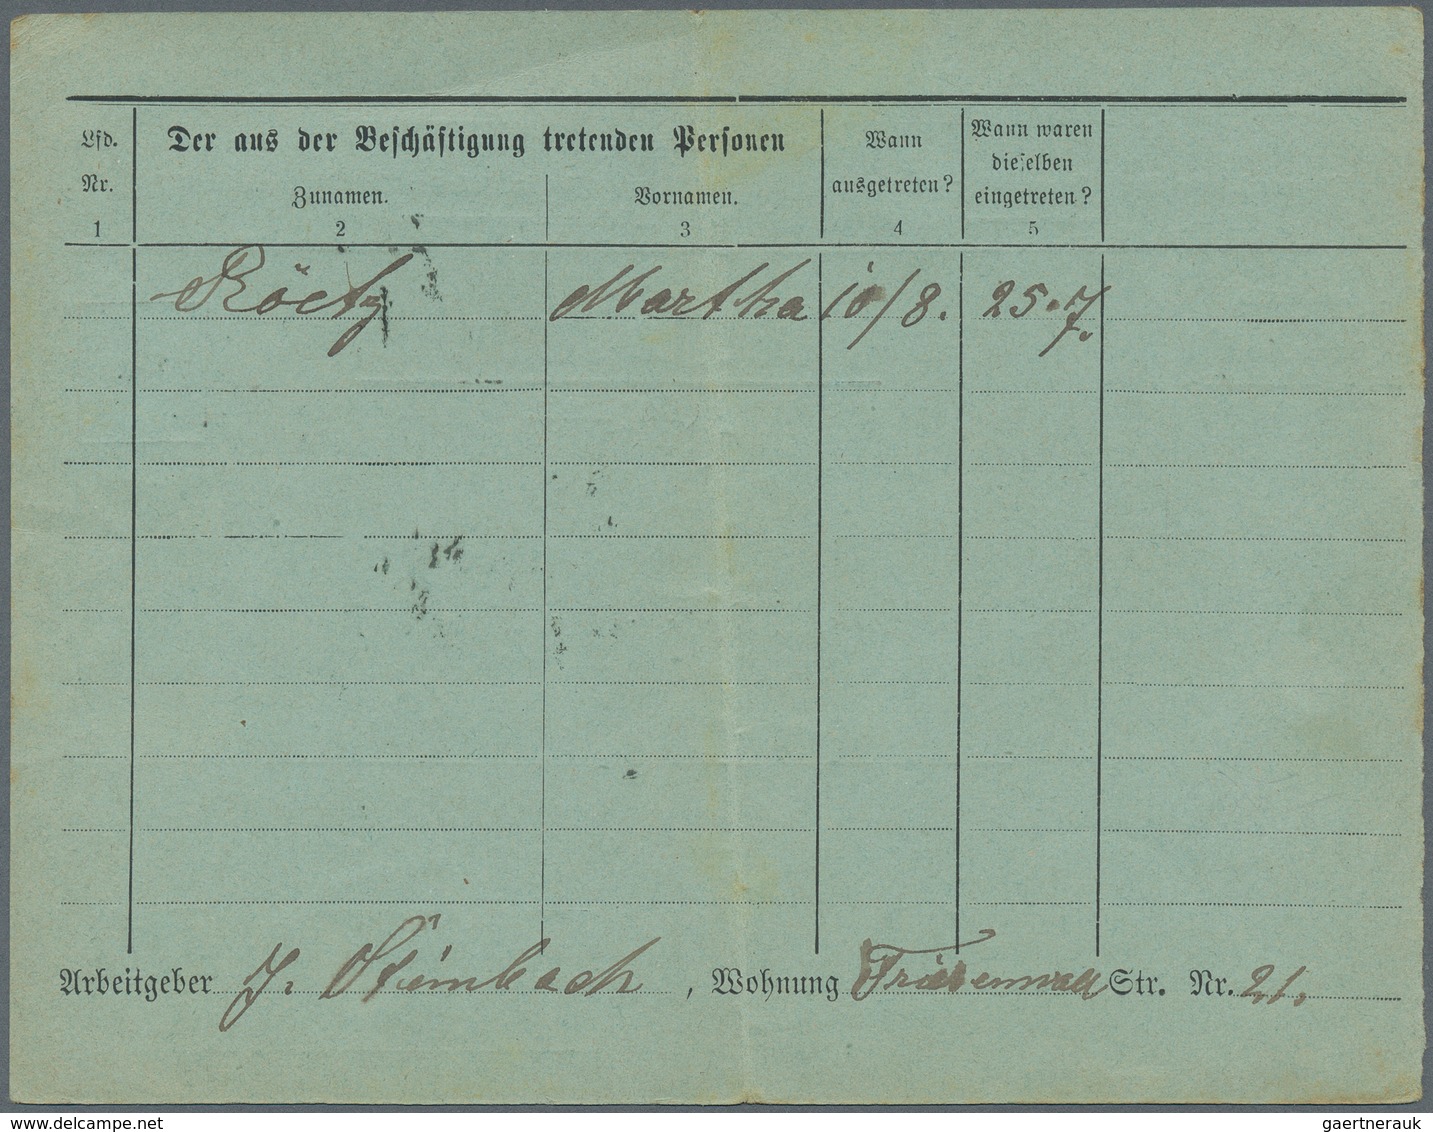 Lfd. Nr. Der aus der Beschäftigung tretenden Personen Wann ausgetreten? Wann waren dieselben eingetreten?
Zunamen. Vornamen.
1 2 3 4 5
Martha 10/8. 25.7.
Arbeitgeber J. Steinbach, Wohnung Friesenwall Str. Nr. 21.
delcampe.net
gaertnerauk